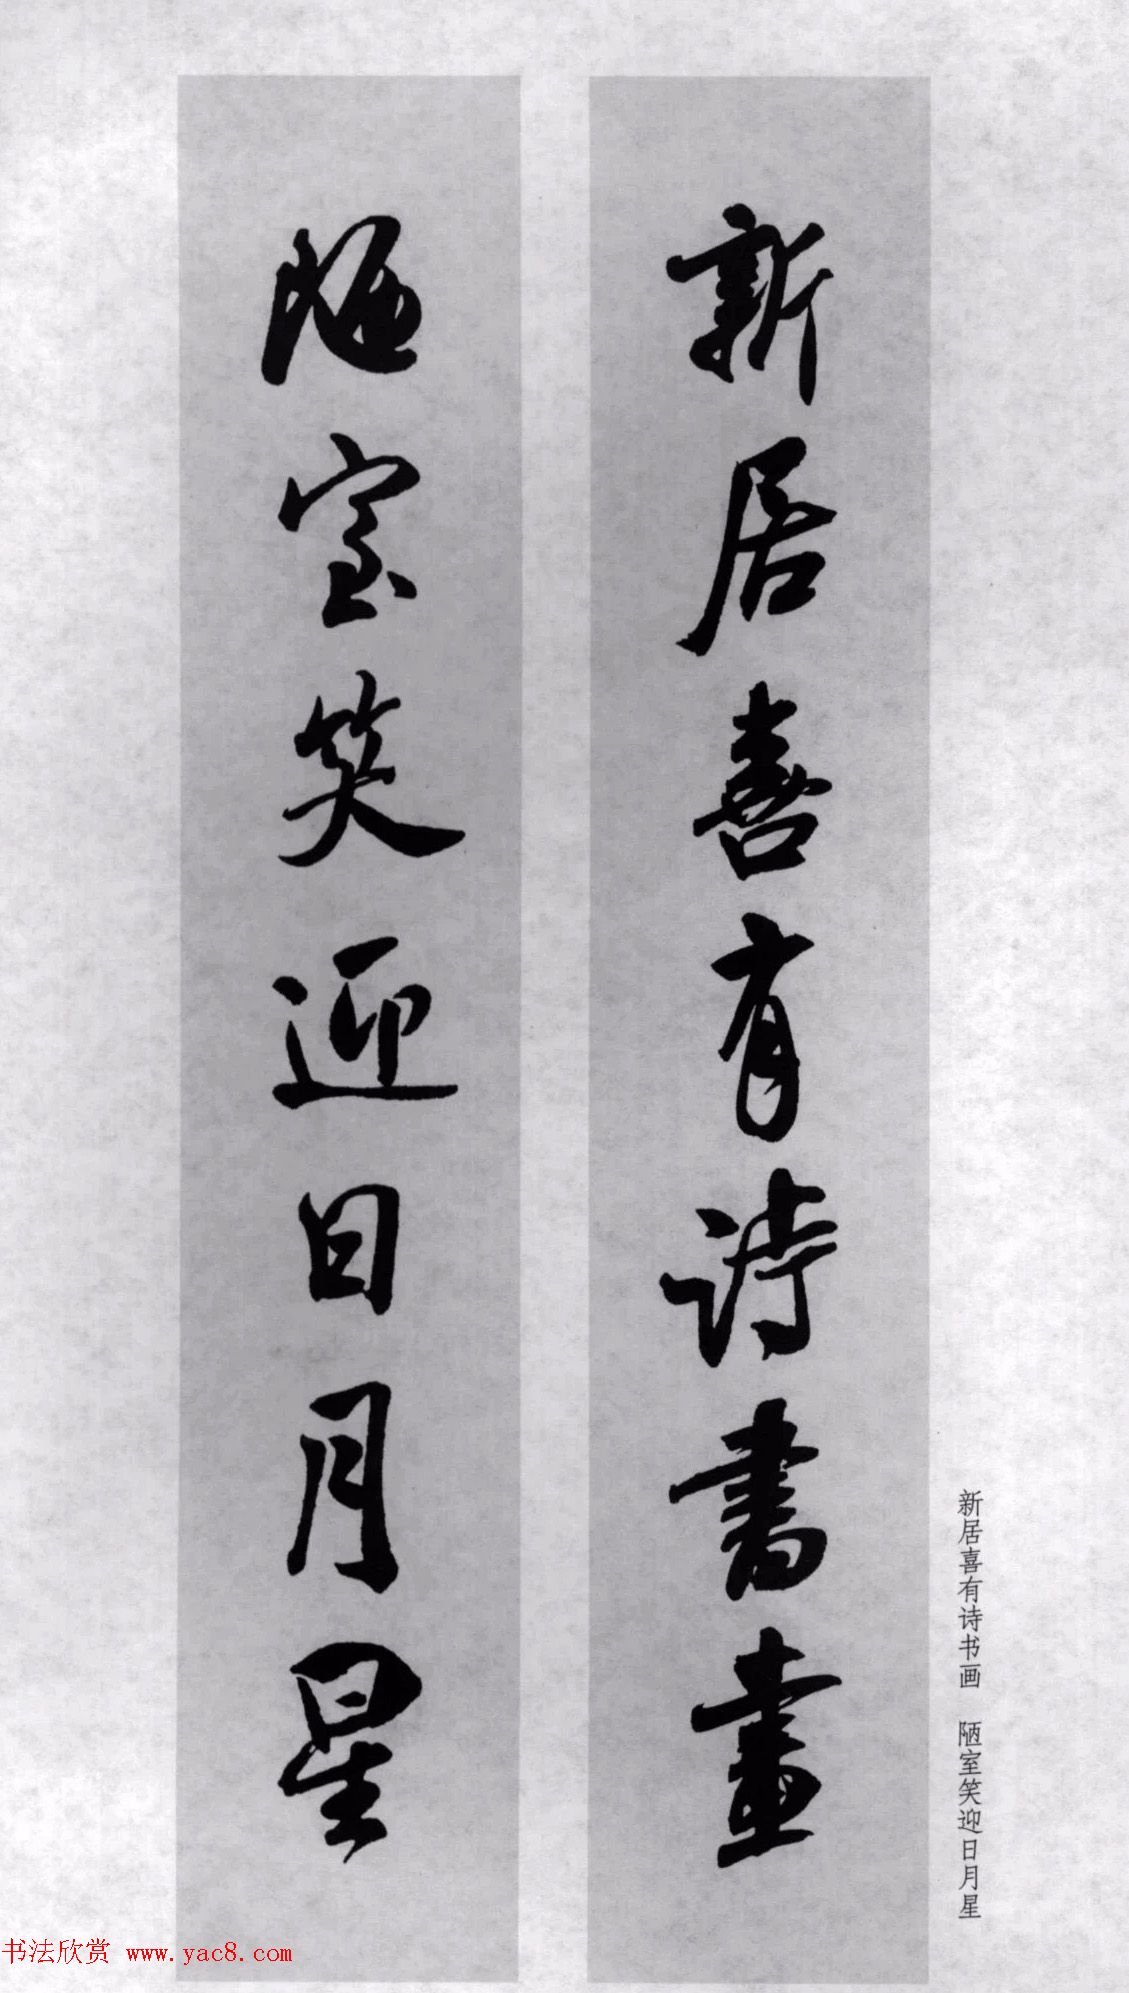 新居喜有詩書畫
陋室笑迎日月星
新居喜有诗书画 陋室笑迎日月星
书法欣赏 www.yac8.com